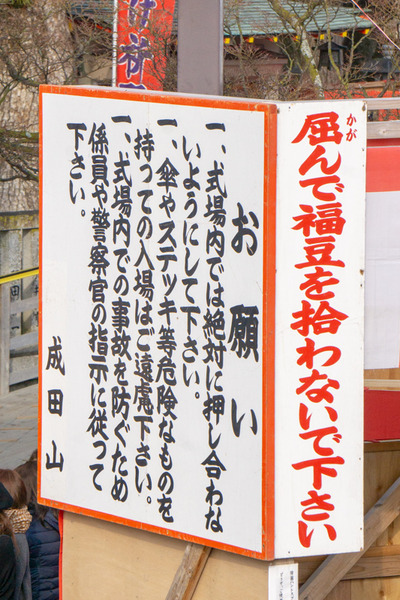 屈んで福豆を拾わないで下さい
かが
お願い
一、式場内では絶対に押し合わな
いようにして下さい。
一、傘やステッキ等危険なものを
持っての入場はご遠慮下さい。
一、式場内での事故を防ぐため
係員や警察官の指示に従って
下さい。
成田山